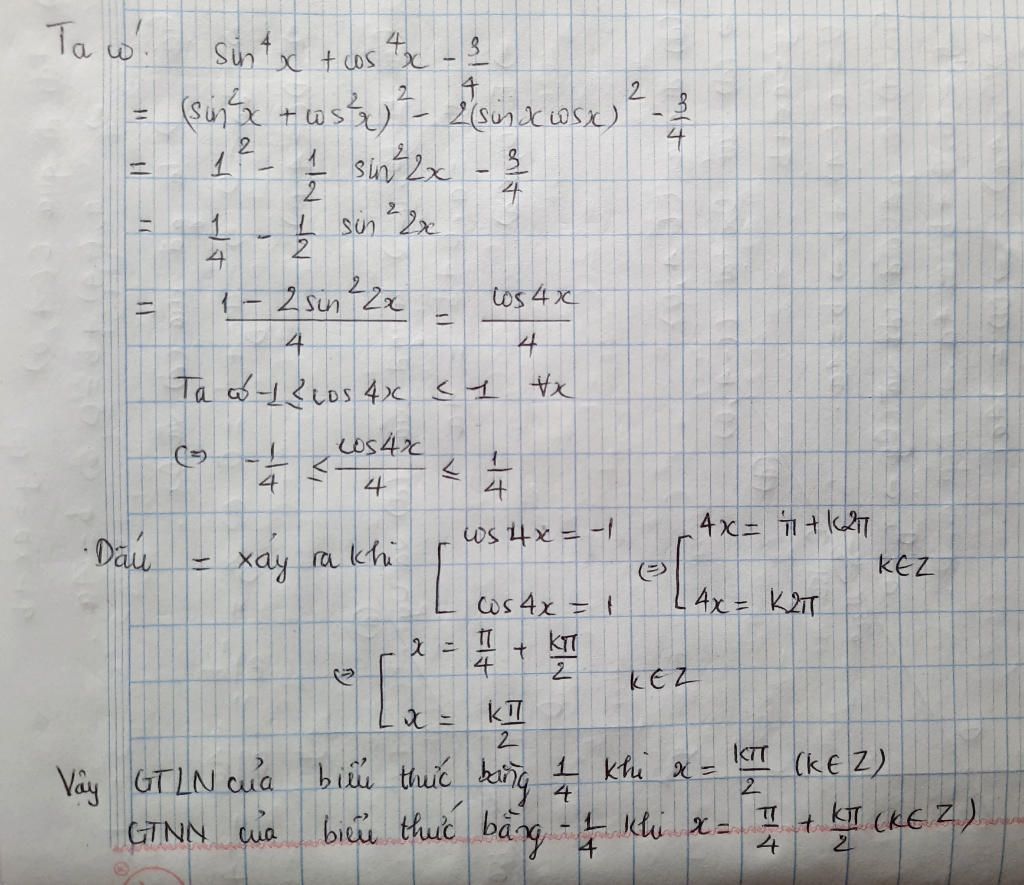 Ta có: sin⁴x + cos⁴x - 3/4
= (sin²x + cos²x)² - 2(sinxcosx)² - 3/4
= 1² - 1/2 sin²2x - 3/4
= 1/4 - 1/2 sin²2x
= (1 - 2sin²2x)/4 = cos4x/4
Ta có -1 ≤ cos4x ≤ 1 ∀x
(=) -1/4 ≤ cos4x/4 ≤ 1/4
Dấu = xảy ra khi [ cos4x = -1 ; cos4x = 1 (=) [ 4x = π + k2π ; 4x = k2π k∈Z
(=) [ x = π/4 + kπ/2 ; x = kπ/2 k∈Z
Vậy GTLN của biểu thức bằng 1/4 khi x = kπ/2 (k∈Z)
GTNN của biểu thức bằng -1/4 khi x = π/4 + kπ/2 (k∈Z)